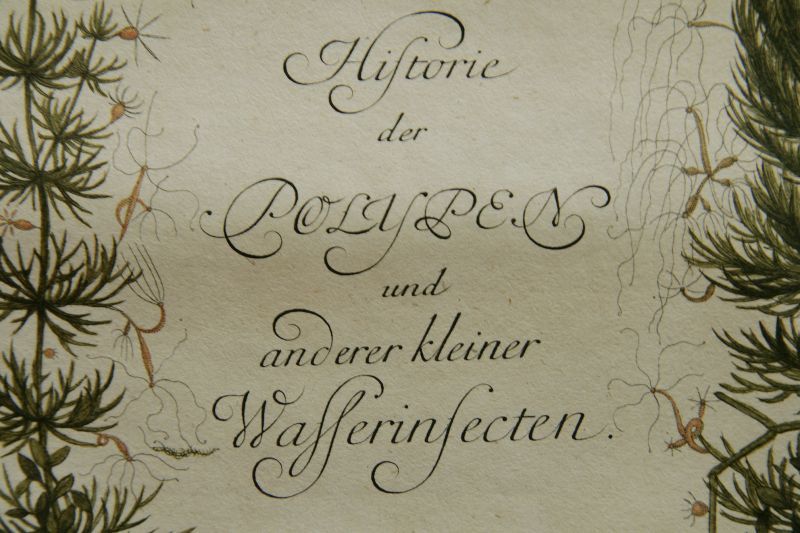 Hiſtorie
der
POLYPEN
und
anderer kleiner
Waſſerinſecten.